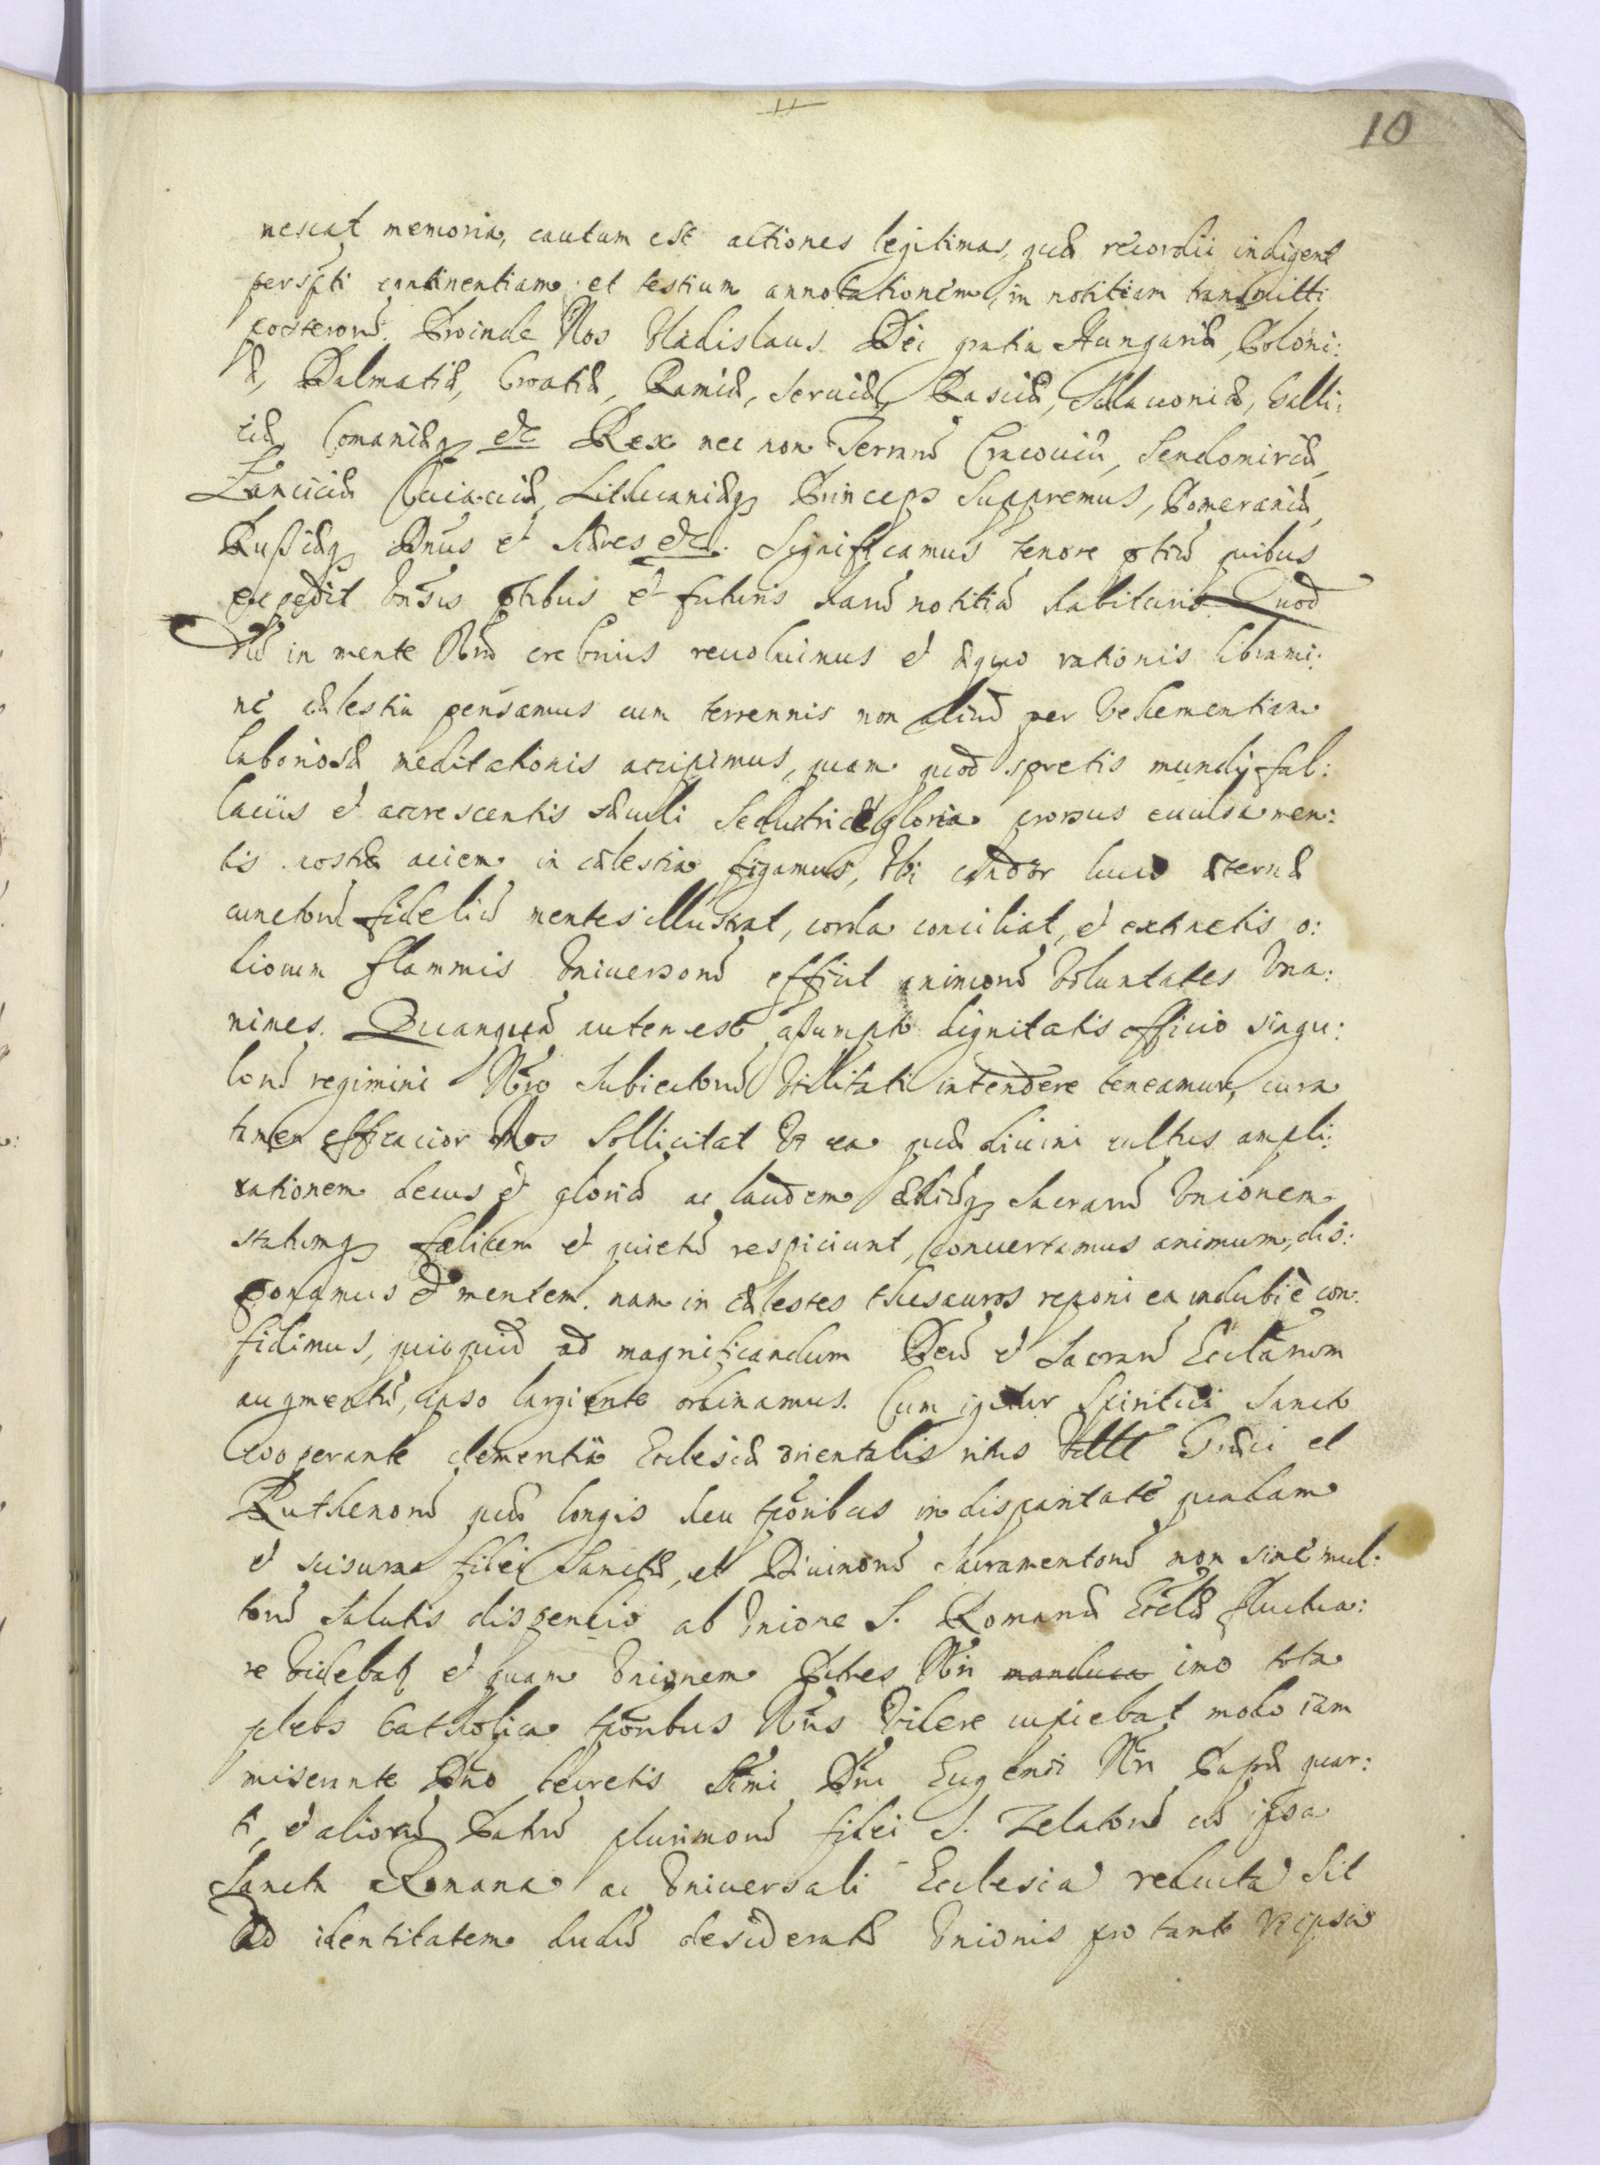 10
nescat memoria, cautum est actiones legitimas, quæ recordii indigent
perscti continentiam et testium annotationem, in notitiam transmitti
posterorũ. Proinde Nos Vladislaus Dei gratia Hungariæ, Poloni:
æ, Dalmatiæ, Croatiæ, Ramiæ, Seruiæ, Rasciæ, Sclauoniæ, Galli:
ciæ Comaniæq etc Rex nec non Terrarũ Cracouiæ, Sendomiriæ,
Lanciciæ Cuiauiæ, Lithuaniæq Princeps Supremus, Pomeraniæ,
Rußiæq Dñus et Hæres etc. Significamus tenore ptiũ quibus
expedit Vnsis ptibus et futuris harũ notitiã habituris Quod
dũ in mente Nrã crebrius reuoluimus et æquo rationis librami:
ne cælestia pensamus cum terrennis non aliud per Vehementiam
laboriosæ meditationis accipimus, quam quod spretis mundy fal:
laciis et accrescentis sæculi seductrice gloria prorsus euulsa men:
tis nostræ aciem in cælestia figamus, Vbi candor lucis æternæ
cunctorũ fideliũ mentes illustrat, corda conciliat, et extinctis o:
diorum flammis Vniuersorũ efficit animorũ Voluntates Vna:
nimes. Quanquã autem est aßumptæ dignitatis officio singu:
lorũ regimini Nro Subiectorũ Vtilitati intendere teneamur, cura
tamen efficacior Nos Sollicitat Vt ea quæ diuini cultus ampli:
ationem decus et gloriã ac laudem Ædiũq Sacrarũ Vnionem
statumq fælicem et quietũ respiciunt, conuertamus animum, dis:
ponamus et mentem. nam in cælestes thesauros reponi ea indubiè con:
fidimus, quicquid ad magnificandum Deũ et Sacrarũ Ecclãrum
augmentũ, ipso largiente ordinamus. Cum igitur Spiritus Sancti
cooperante clementia Ecclesia orientalis ritus Græci et
Ruthenorũ quæ longis heu tporibus in disparitate quadam
et scisura fidei Sanctæ, et Diuinorũ Sacramentorũ non sine mul:
torũ salutis dispendio ab Vnione S. Romanæ Ecclæ fluctua:
re Videbat et quam Vnionem Patres Nri manduca imo tota
plebs Catholica tporibus Nris Videre cupiebat modo iam
miserante Dno decretis Stmi Dni Eugenii Nri Papæ quar:
ti et aliorũ Patrũ plurimorũ fidei S. Zelatorũ cũ ipsa
Sancta Romana ac Vniuersali Ecclesia reducta sit
Ad identitatem dudũ desideratæ Vnionis pro tanto Vt ipsa